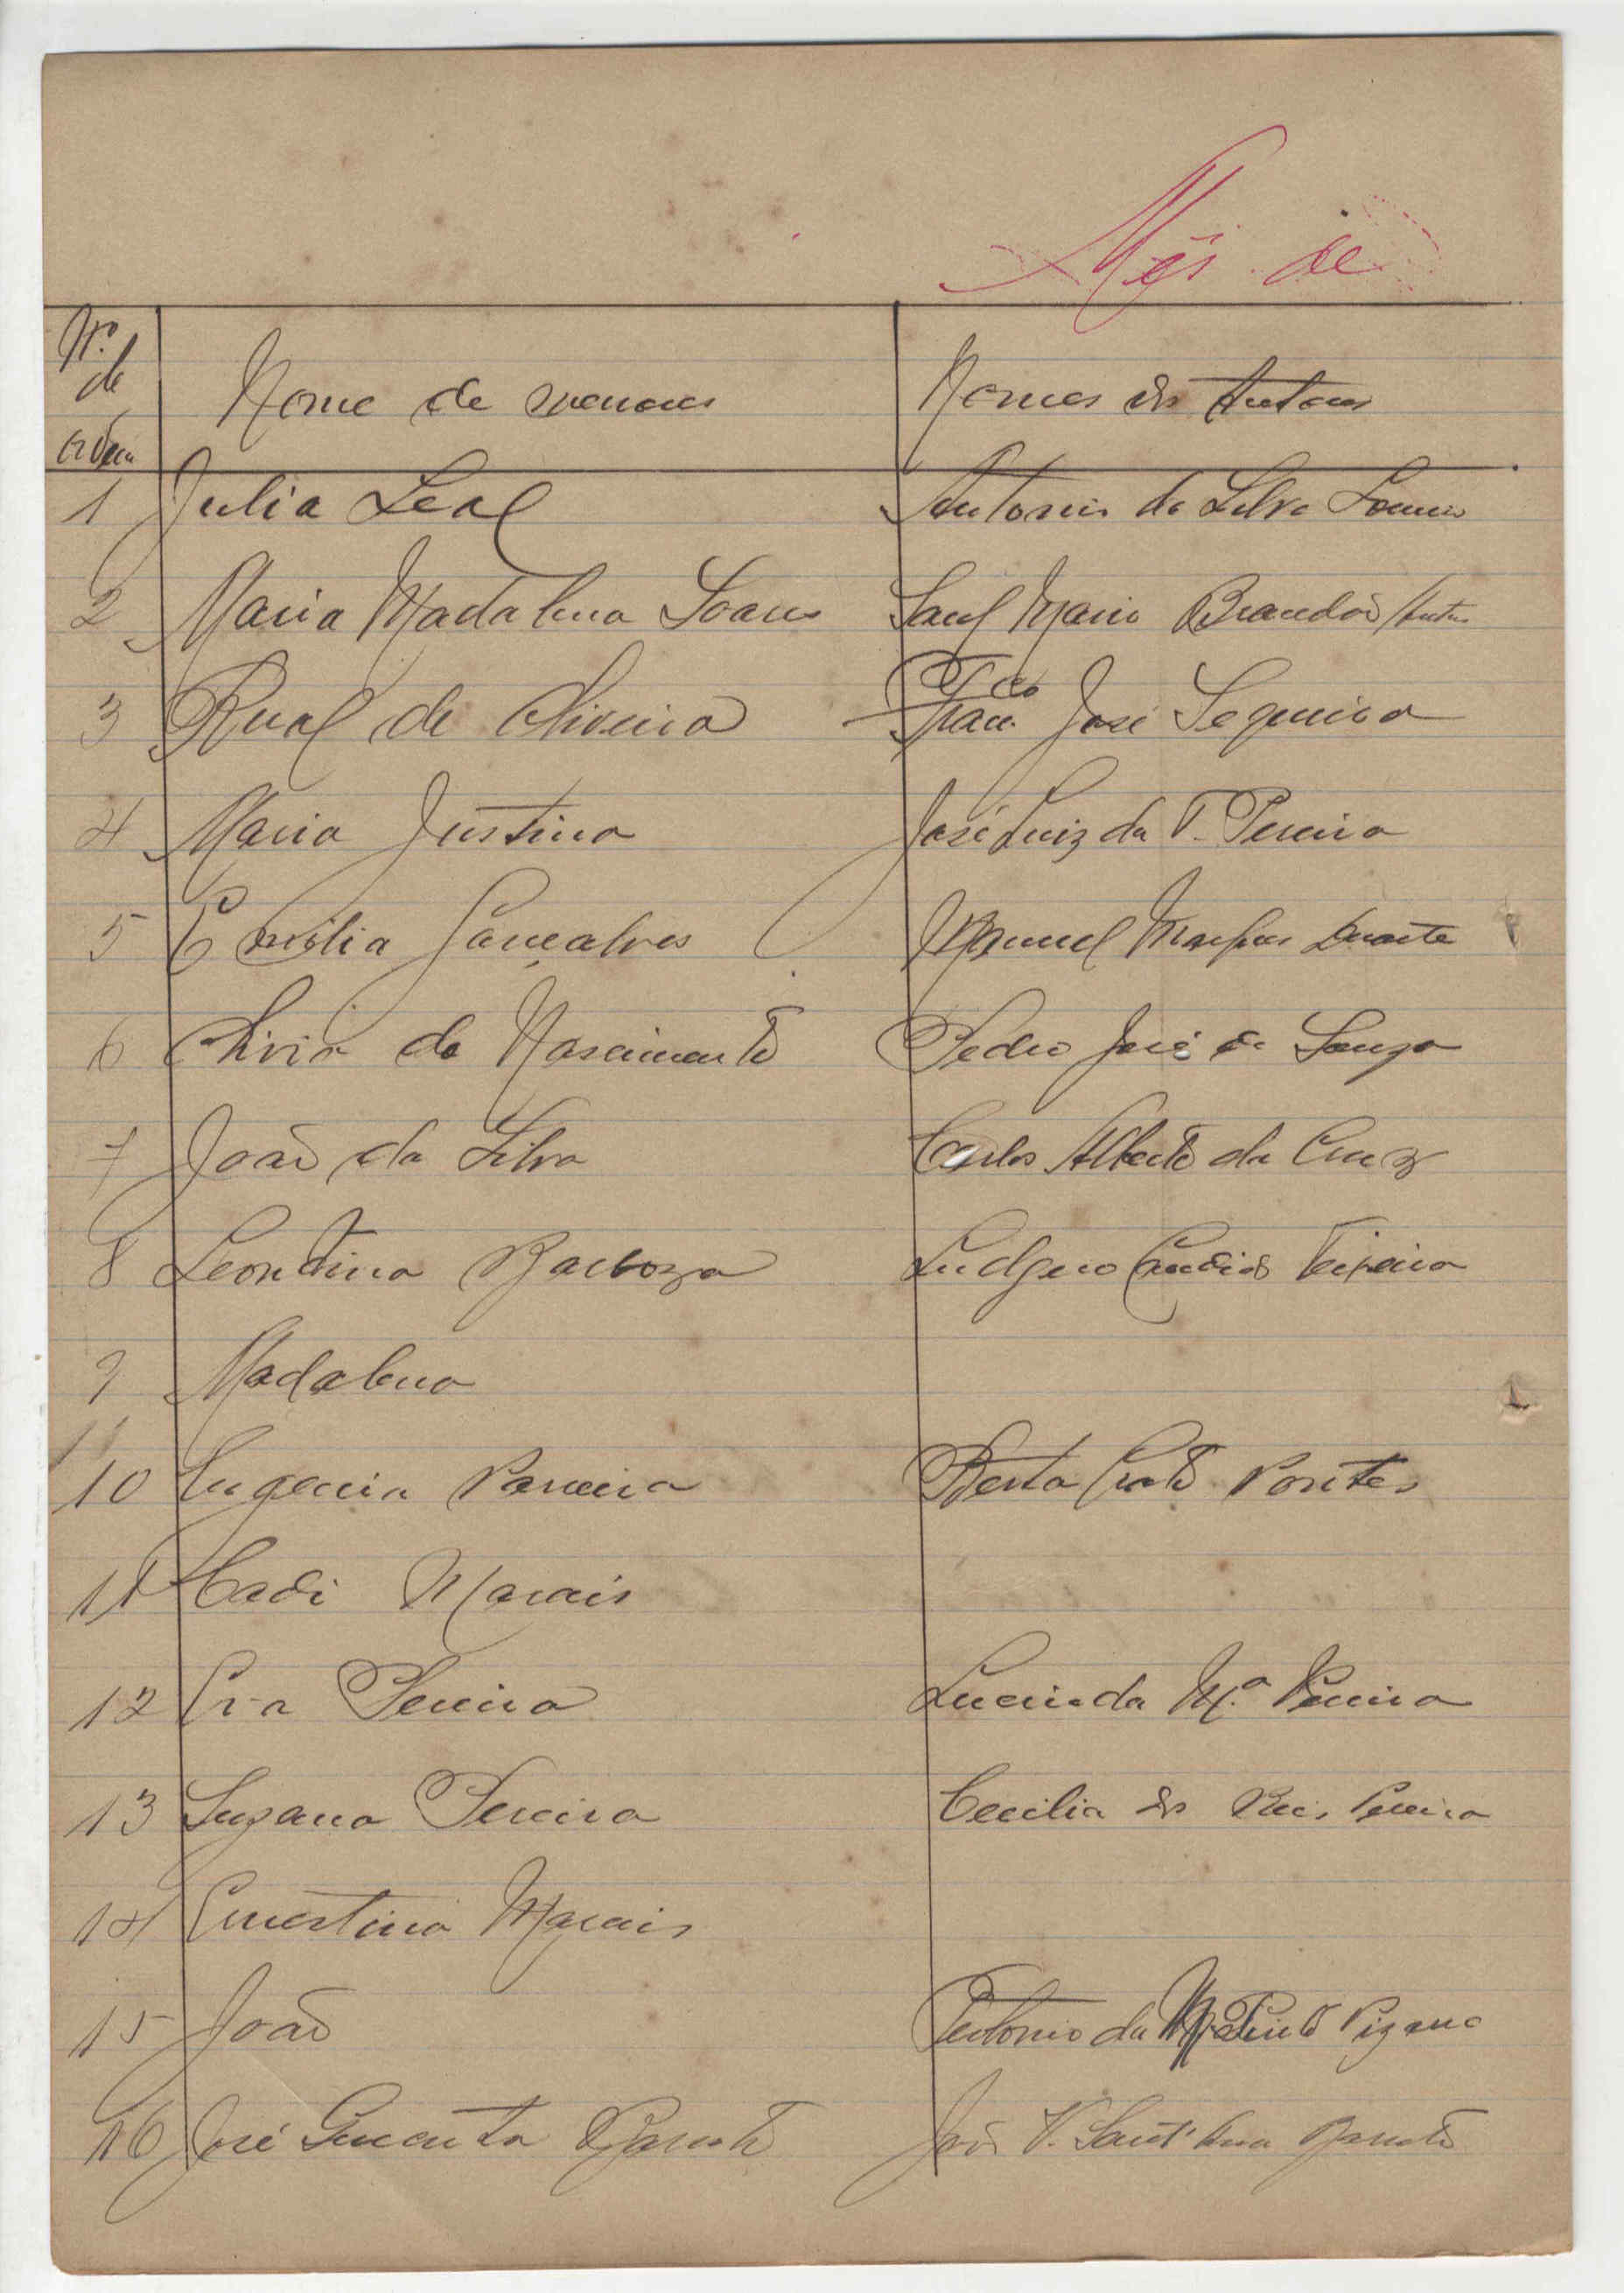 Mês de
Nº de ordem Nome de menores Nomes dos Tutores
1 Julia Leal Antonio da Silva
2 Maria Madalena Soares Saul Mario Brandão
3 Rual de Oliveira Franco José Sequeira
4 Maria Justina José Luiz da T. Pereira
5 Emilia Gonçalves Manuel Duarte
6 Olivia do Nascimento Pedro José de Souza
7 João da Silva Carlos Alberto da Cruz
8 Leontina Barboza Ludgero Candido Teixeira
9 Madalena
10 Eugenia Parreira Berta Pontes
11 Cadi Morais
12 Eva Pereira Lucinda Mª Pereira
13 Suzana Pereira Cecilia dos Reis Pereira
14 Ernestina Morais
15 João Antonio da Pinto
16 José Barreto João V. Sant'Ana Barreto